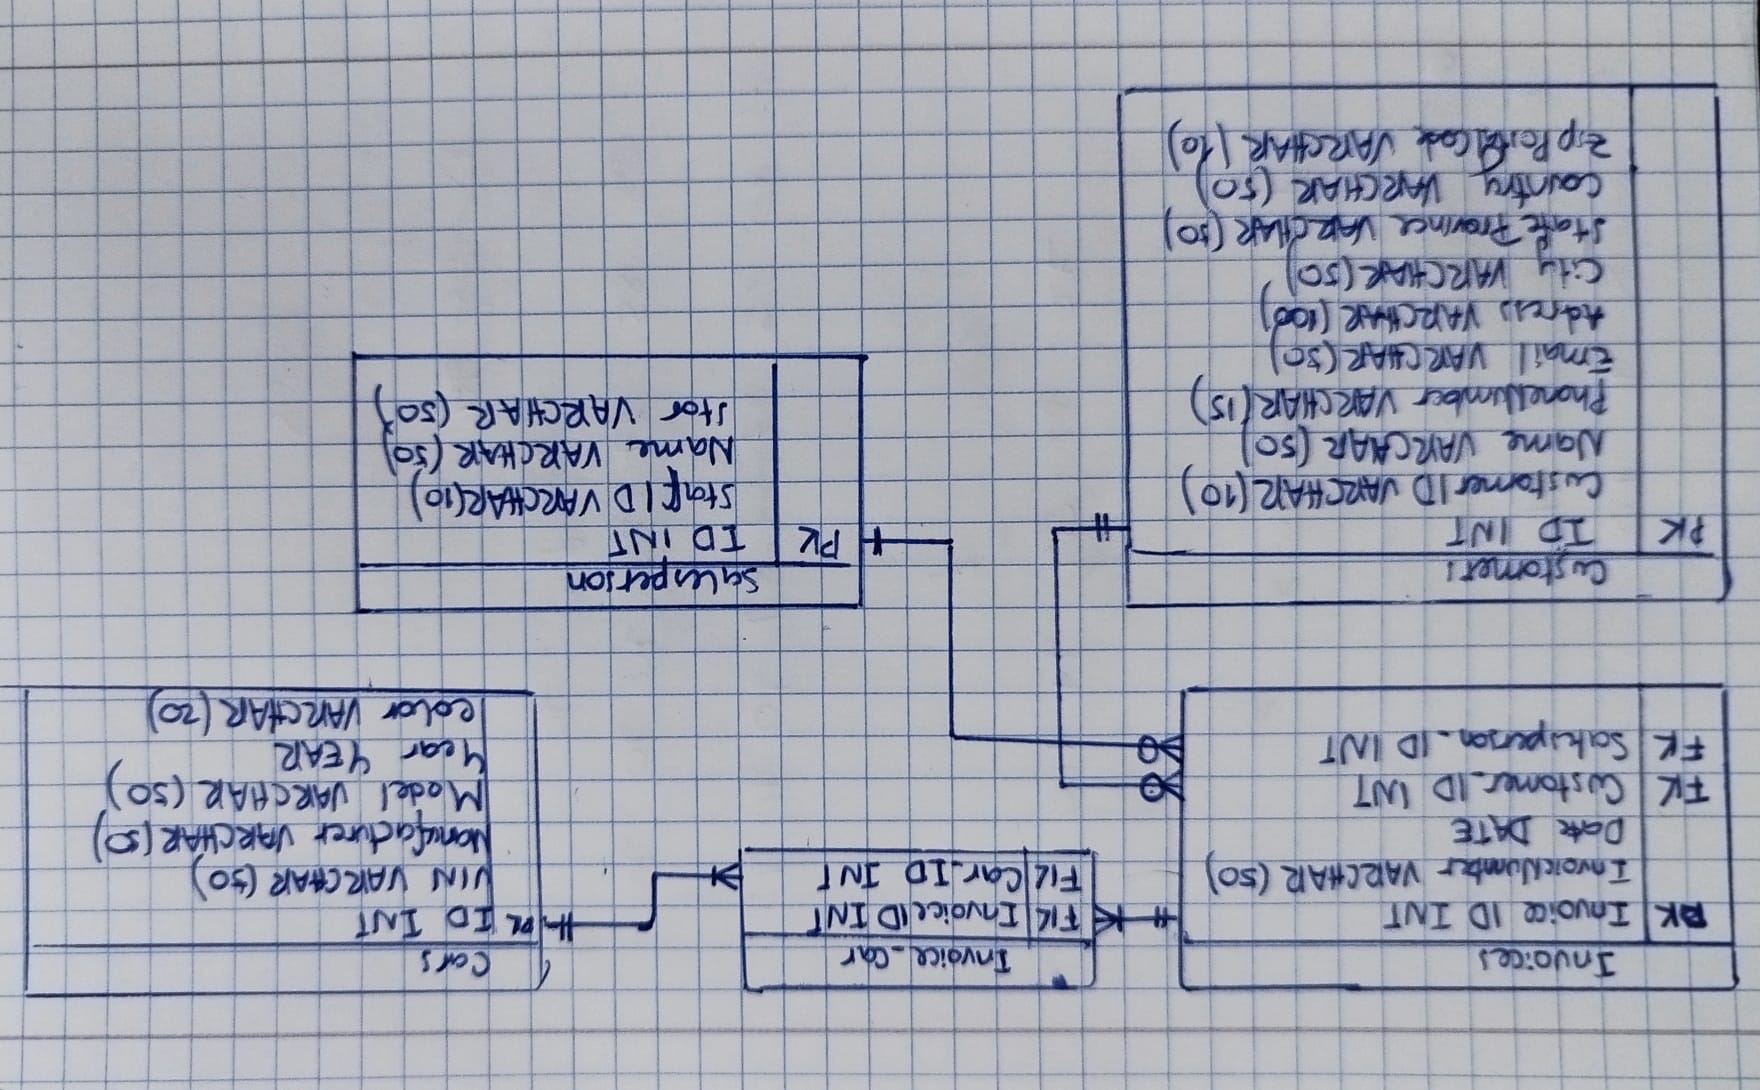 Invoices
PK Invoice ID INT
InvoicNumber VARCHAR (50)
Date DATE
FK Customer_ID INT
FK Salesperson_ID INT
Invoice_car
FK InvoiceID INT
FK Car_ID INT
Cars
PK ID INT
VIN VARCHAR (50)
Manufacturer VARCHAR (50)
Model VARCHAR (50)
Year YEAR
color VARCHAR (20)
Customers
PK ID INT
CustomerID VARCHAR (10)
Name VARCHAR (50)
PhoneNumber VARCHAR (15)
Email VARCHAR (50)
Adress VARCHAR (100)
City VARCHAR (50)
State Province VARCHAR (50)
Country VARCHAR (50)
Zip PostalCode VARCHAR (10)
Salesperson
PK ID INT
StafID VARCHAR (10)
Name VARCHAR (50)
Stor VARCHAR (50)